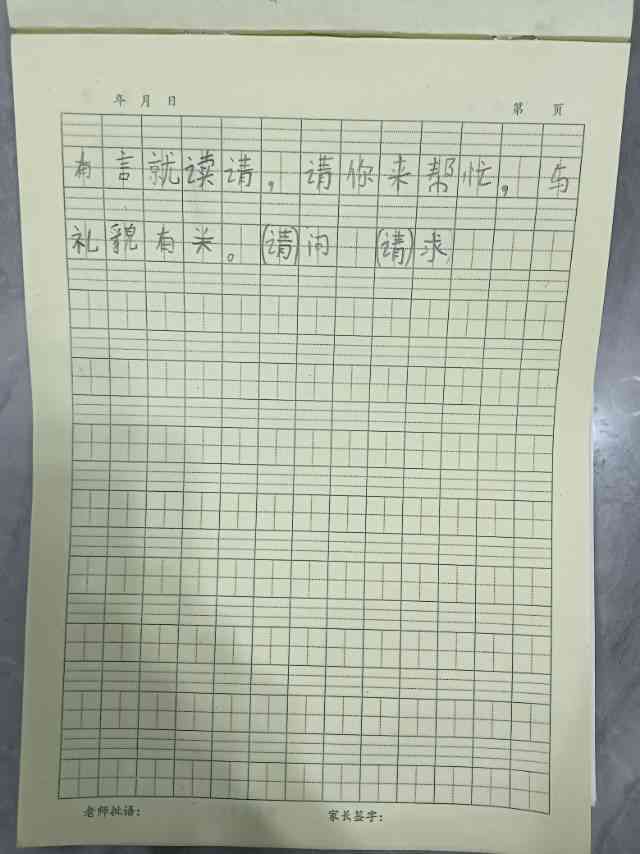 年 月 日 第 页
有言就读请，请你来帮忙，与
礼貌有关。(请)问 (请)求
老师批语： 家长签字：